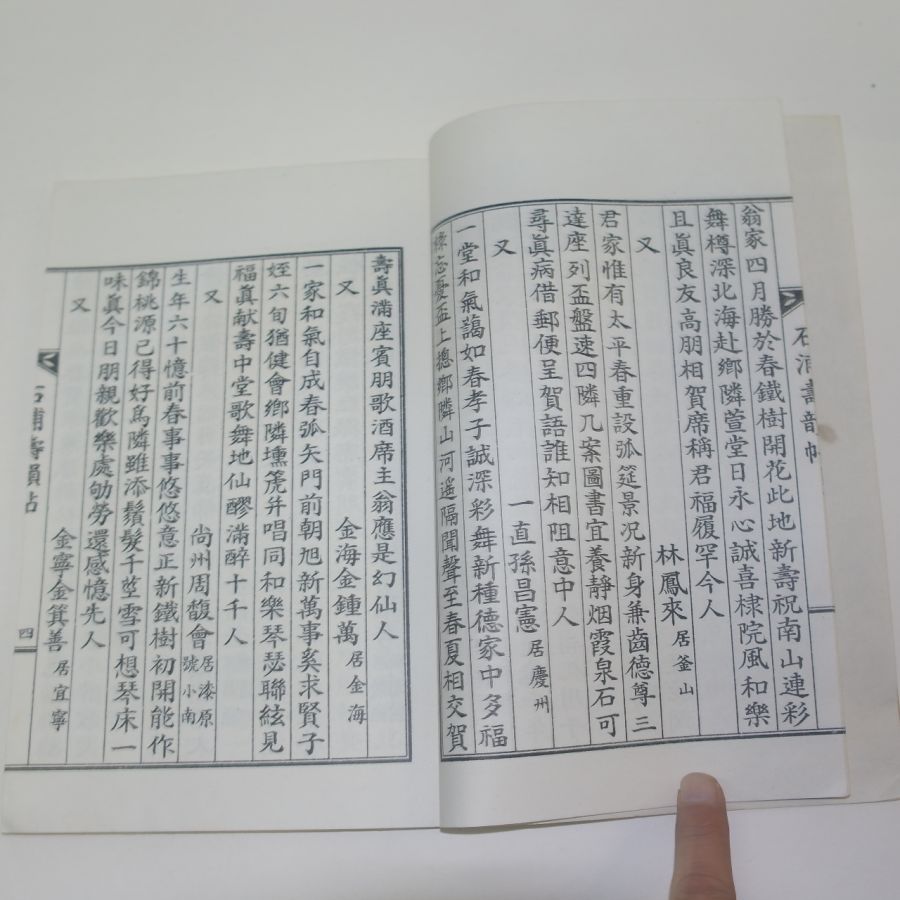 石浦壽韻帖
翁家四月勝於春鐵樹開花此地新壽祝南山連彩
舞樽深北海赴鄉隣萱堂日永心誠喜棣院風和樂
且眞良友高朋相賀席稱君福履罕今人
又 林鳳來 居釜山
君家惟有太平春重設弧筵景况新身兼齒德尊三
達座列盃盤速四隣几案圖書宜養靜烟霞泉石可
尋眞病借郵便呈賀語誰知相阻意中人
又 一直孫昌憲 居慶州
一堂和氣藹如春孝子誠深彩舞新種德家中多福
祿忘憂盃上摠鄉隣山河遥隔聞聲至春夏相交賀
壽眞滿座賓朋歌酒席主翁應是幻仙人
又 金海金鍾萬 居金海
一家和氣自成春弧矢門前朝旭新萬事奚求賢子
姪六旬猶健會鄉隣壎箎并唱同和樂琴瑟聯絃見
福眞献壽中堂歌舞地仙醪滿醉十千人
又 尙州周馥會 居漆原 號小南
生年六十憶前春事事悠悠意正新鐵樹初開能作
錦桃源已得好爲隣雖添鬚髮千莖雪可想琴床一
味眞今日朋親歡樂處劬勞還感憶先人
又 金寧金箕善 居宜寧
石浦壽韻帖 四